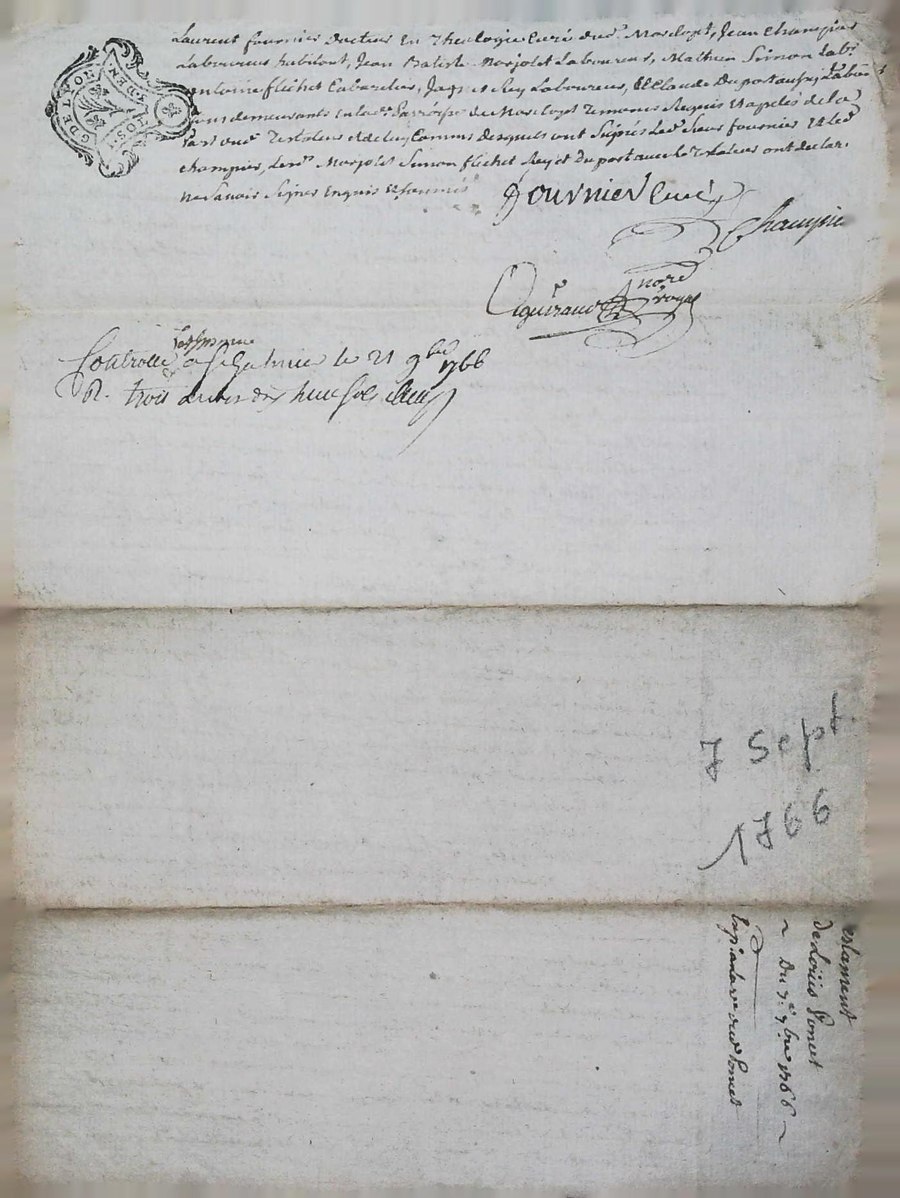 Laurent fournier docteur En Theologie Curé dud. Marclopt, Jean Champier
Laboureur habitant, Jean Batiste Marjolet Laboureur, Mathieu Simon Labr
antoine flechet Cabaretier, Jaques Rey Laboureur, Et Claude Duport aussy Lab
tous demeurants en lad. Parroisse de Marclopt Temoins Requis & apelés de la
part dud. Testateur desquels ont Signés Led. Sieur fournier & led
champier, Lesd. Marjolet Simon flechet Rey et duport avec le Testateur ont declaré
ne Savoir Signer Enquis et Sommés
fournier Curé
Champier
Aguiraud
Nore Royal
Controllé a St Galmier le 21 9bre 1766
R. trois livres dix huit sols
GDE LYON
7 Sept.
1766
Testament
de Loüis Poncet
~ Du 7e 7bre 1766 ~